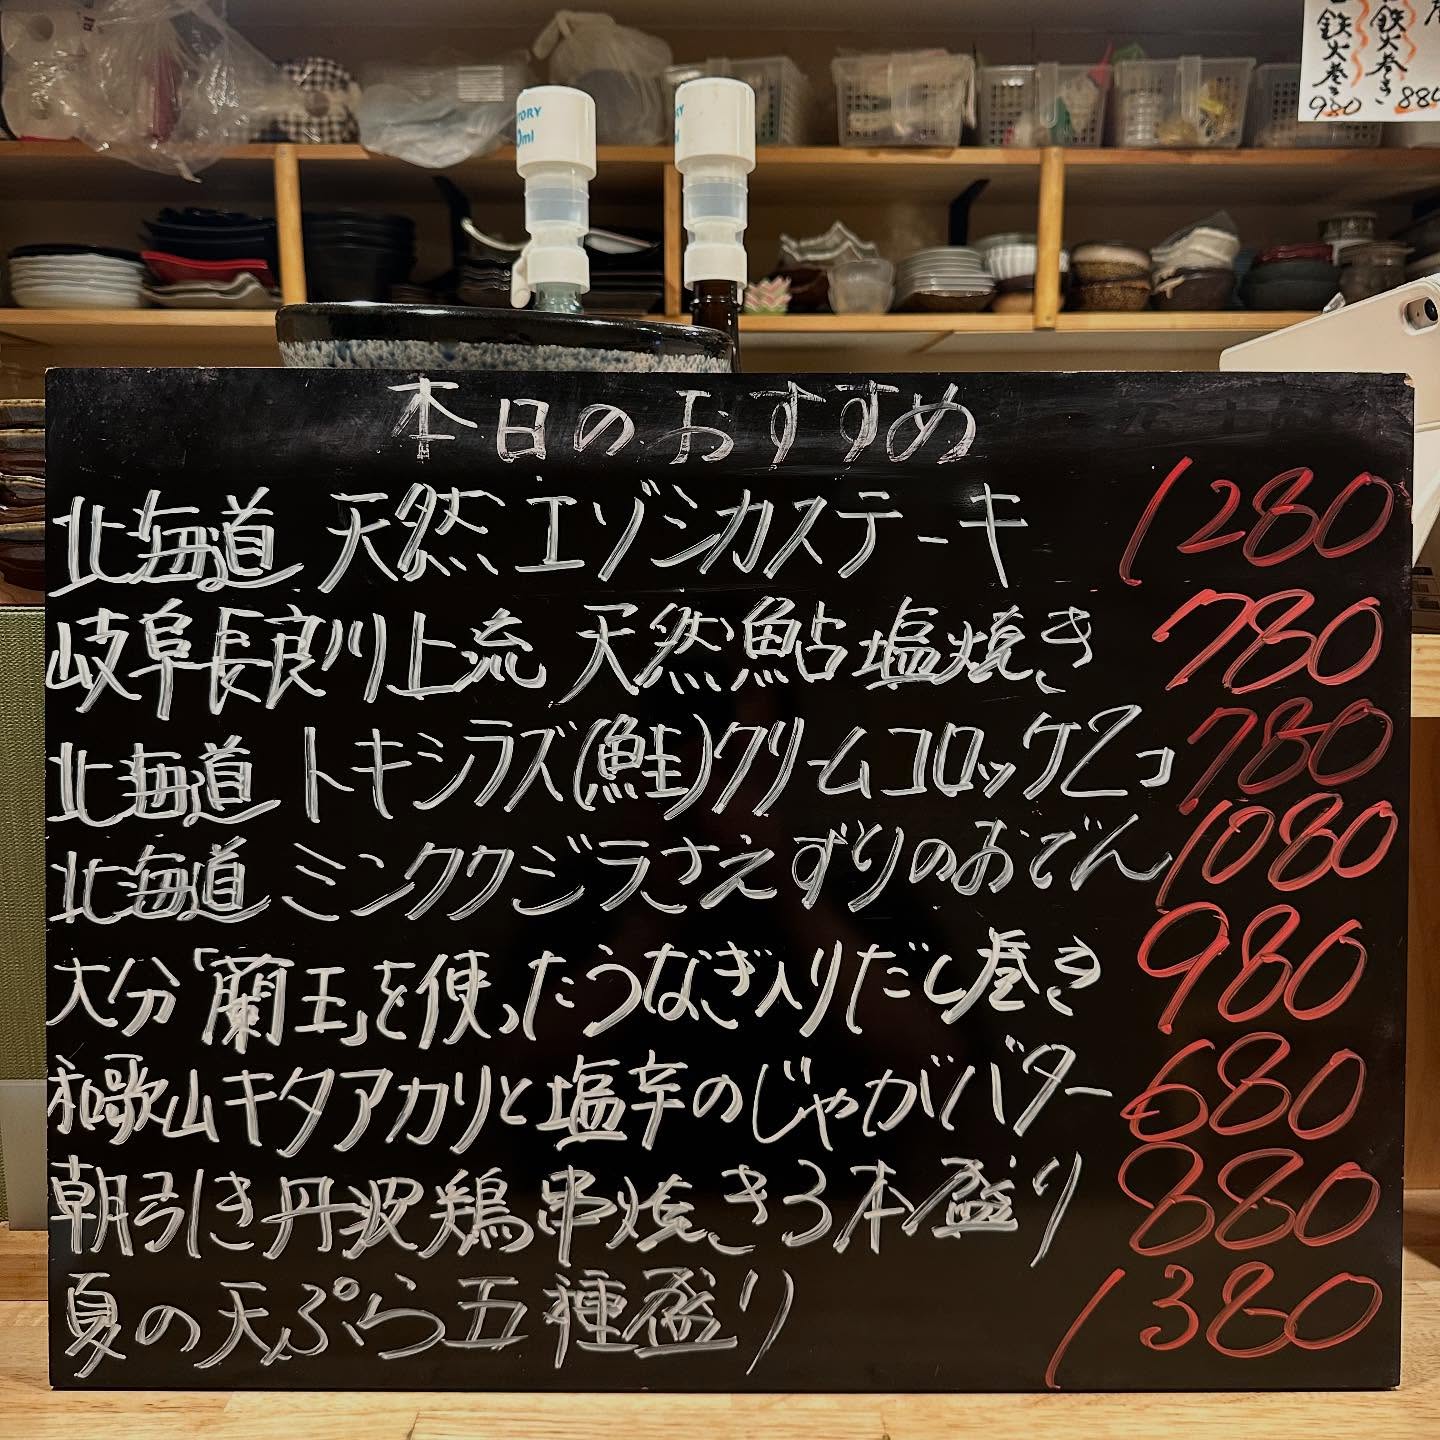 鉄火巻き
980
鉄火巻き
880
TORY
0ml
RY
0ml
本日のおすすめ
北海道 天然 エゾシカステーキ 1280
岐阜長良川上流 天然鮎塩焼き 780
北海道 トキシラズ(鮭)クリームコロッケ2コ 780
北海道 ミンククジラさえずりのおでん 1080
大分「蘭王」を使ったうなぎ入りだし巻き 980
和歌山キタアカリと塩辛のじゃがバター 680
朝引き丹波鶏串焼き3本盛り 880
夏の天ぷら五種盛り 1380